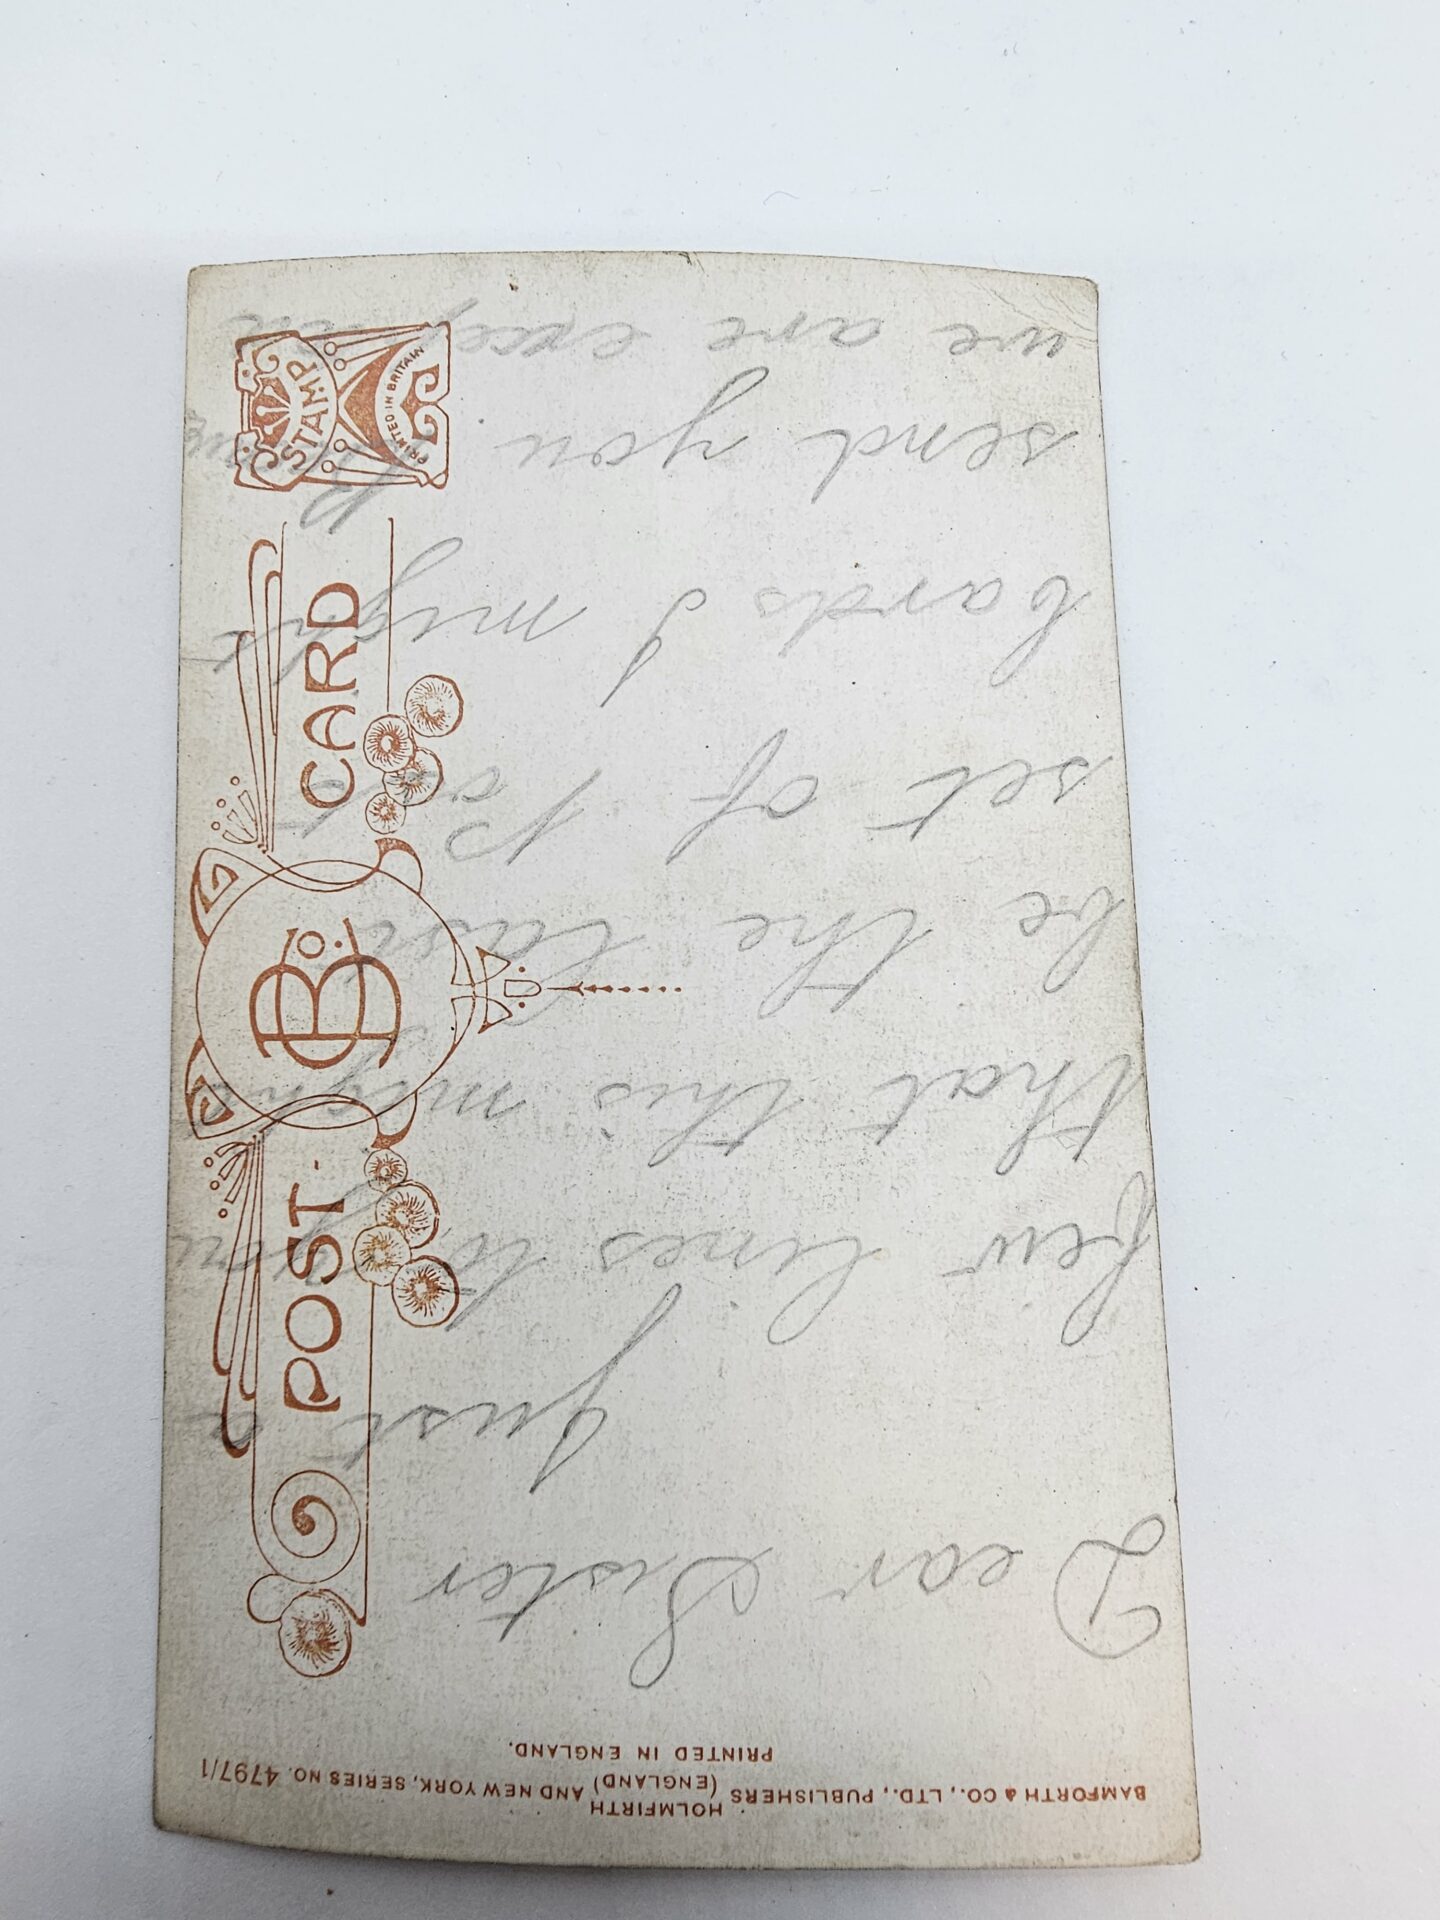 BAMFORTH & CO., LTD., PUBLISHERS (HOLMFIRTH (ENGLAND) AND NEW YORK, SERIES NO. 4797/1
PRINTED IN ENGLAND.
POST-CARD
B & Co.
STAMP
PRINTED IN BRITAIN
Dear Sister
Just a
few lines to you
that this might
be the last
set of Post
Cards I might
send you
we are